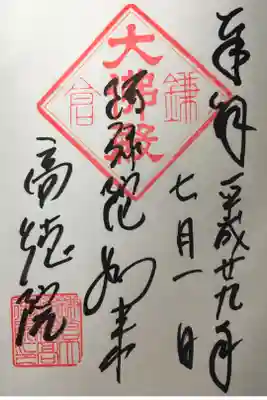 奉拝 平成廿九年
七月一日
阿弥陀如来
高徳院
大佛殿
鎌倉